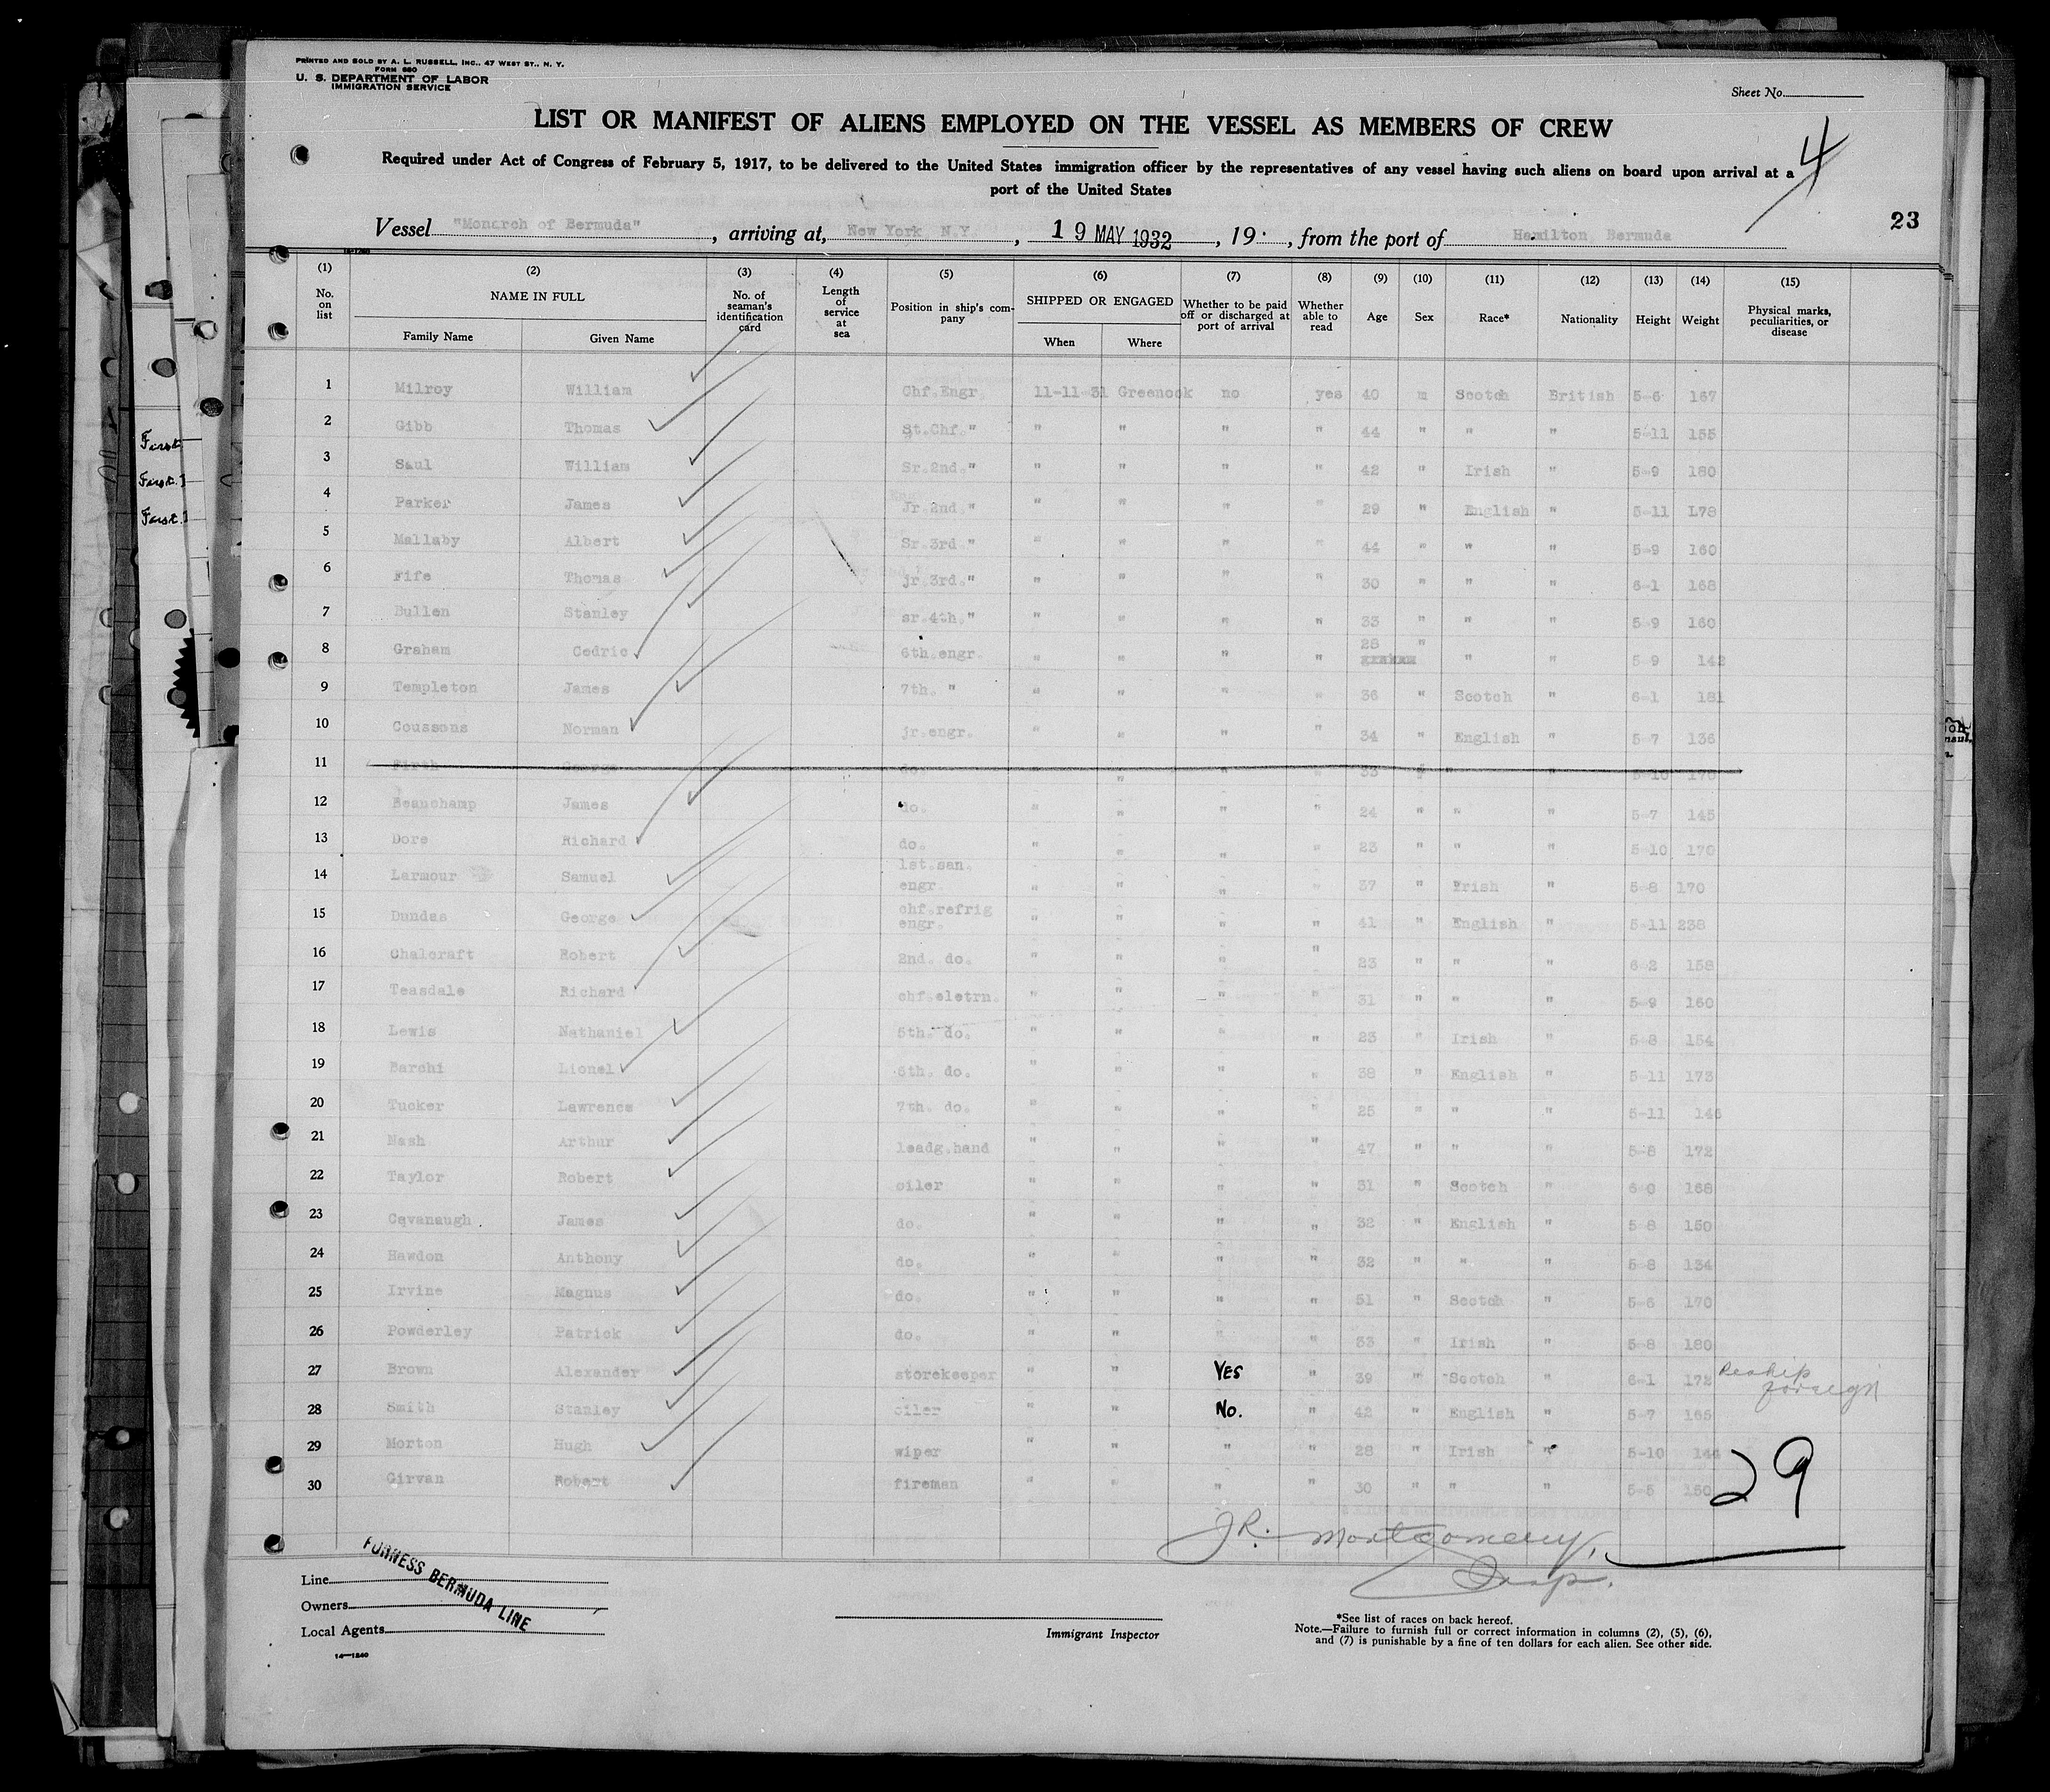 PRINTED AND SOLD BY A. L. RUSSELL, INC., 47 WEST ST., N. Y.
FORM 680
U. S. DEPARTMENT OF LABOR
IMMIGRATION SERVICE
Sheet No.
LIST OR MANIFEST OF ALIENS EMPLOYED ON THE VESSEL AS MEMBERS OF CREW
Required under Act of Congress of February 5, 1917, to be delivered to the United States immigration officer by the representatives of any vessel having such aliens on board upon arrival at a
port of the United States
4
23
Vessel "Monarch of Bermuda", arriving at, New York N.Y., 19 MAY 1932, 19 , from the port of Hamilton Bermuda
(1) (2) (3) (4) (5) (6) (7) (8) (9) (10) (11) (12) (13) (14) (15)
No. on list NAME IN FULL Family Name Given Name No. of seaman's identification card Length of service at sea Position in ship's company SHIPPED OR ENGAGED When Where Whether to be paid off or discharged at port of arrival Whether able to read Age Sex Race* Nationality Height Weight Physical marks, peculiarities, or disease
1 Milroy William Chf.Engr 11-11-31 Greenock no yes 40 m Scotch British 5-6 167
2 Gibb Thomas St.Chf." " " " " 44 " " " 5-11 155
3 Saul William Sr.2nd." " " " " 42 " Irish " 5-9 180
4 Parker James Jr.2nd." " " " " 29 " English " 5-11 L78
5 Mallaby Albert Sr.3rd." " " " " 44 " " " 5-9 160
6 Fife Thomas jr.3rd." " " " " 30 " " " 6-1 168
7 Bullen Stanley sr.4th." " " " " 33 " " " 5-9 160
8 Graham Cedric 6th.engr. " " " " 28 " " " 5-9 142
9 Templeton James 7th. " " " " " 36 " Scotch " 6-1 181
10 Coussons Norman jr.engr. " " " " 34 " English " 5-7 136
11 Firth George do. " " " 33 " " 5-10
12 Beauchamp James do. " " " " 24 " " " 5-7 145
13 Dore Richard do. " " " " 23 " " " 5-10 170
14 Larmour Samuel 1st.san. engr. " " " " 37 " Irish " 5-8 170
15 Dundas George chf.refrig engr. " " " " 41 " English " 5-11 238
16 Chalcraft Robert 2nd. do. " " " " 23 " " " 6-2 158
17 Teasdale Richard chf.eletrn. " " " " 31 " " " 5-9 160
18 Lewis Nathaniel 5th. do. " " " 23 " Irish " 5-8 154
19 Barchi Lionel 6th. do. " " " " 38 " English " 5-11 173
20 Tucker Lawrence 7th. do. " " " " 25 " " " 5-11 146
21 Nash Arthur leadg.hand " " " " 47 " " " 5-8 172
22 Taylor Robert oiler " " " " 31 " Scotch " 6-0 168
23 Cavanaugh James do. " " " " 32 " English " 5-8 150
24 Hawdon Anthony do. " " " " 32 " " " 5-8 134
25 Irvine Magnus do. " " " " 51 " Scotch " 5-6 170
26 Powderley Patrick do. " " " " 33 " Irish " 5-8 180
27 Brown Alexander storekeeper " " YES " 39 " Scotch " 6-1 172 Reship foreign
28 Smith Stanley oiler " " No. " 42 " English " 5-7 165
29 Morton Hugh wiper " " " " 28 " Irish " 5-10 144
30 Girvan Robert fireman " " " " 30 " " " 5-5 150
29
J R. Montgomery,
Insp.
Line
Owners
Local Agents
FURNESS BERMUDA LINE
14—1240
Immigrant Inspector
*See list of races on back hereof.
Note.—Failure to furnish full or correct information in columns (2), (5), (6),
and (7) is punishable by a fine of ten dollars for each alien. See other side.
First
First
First